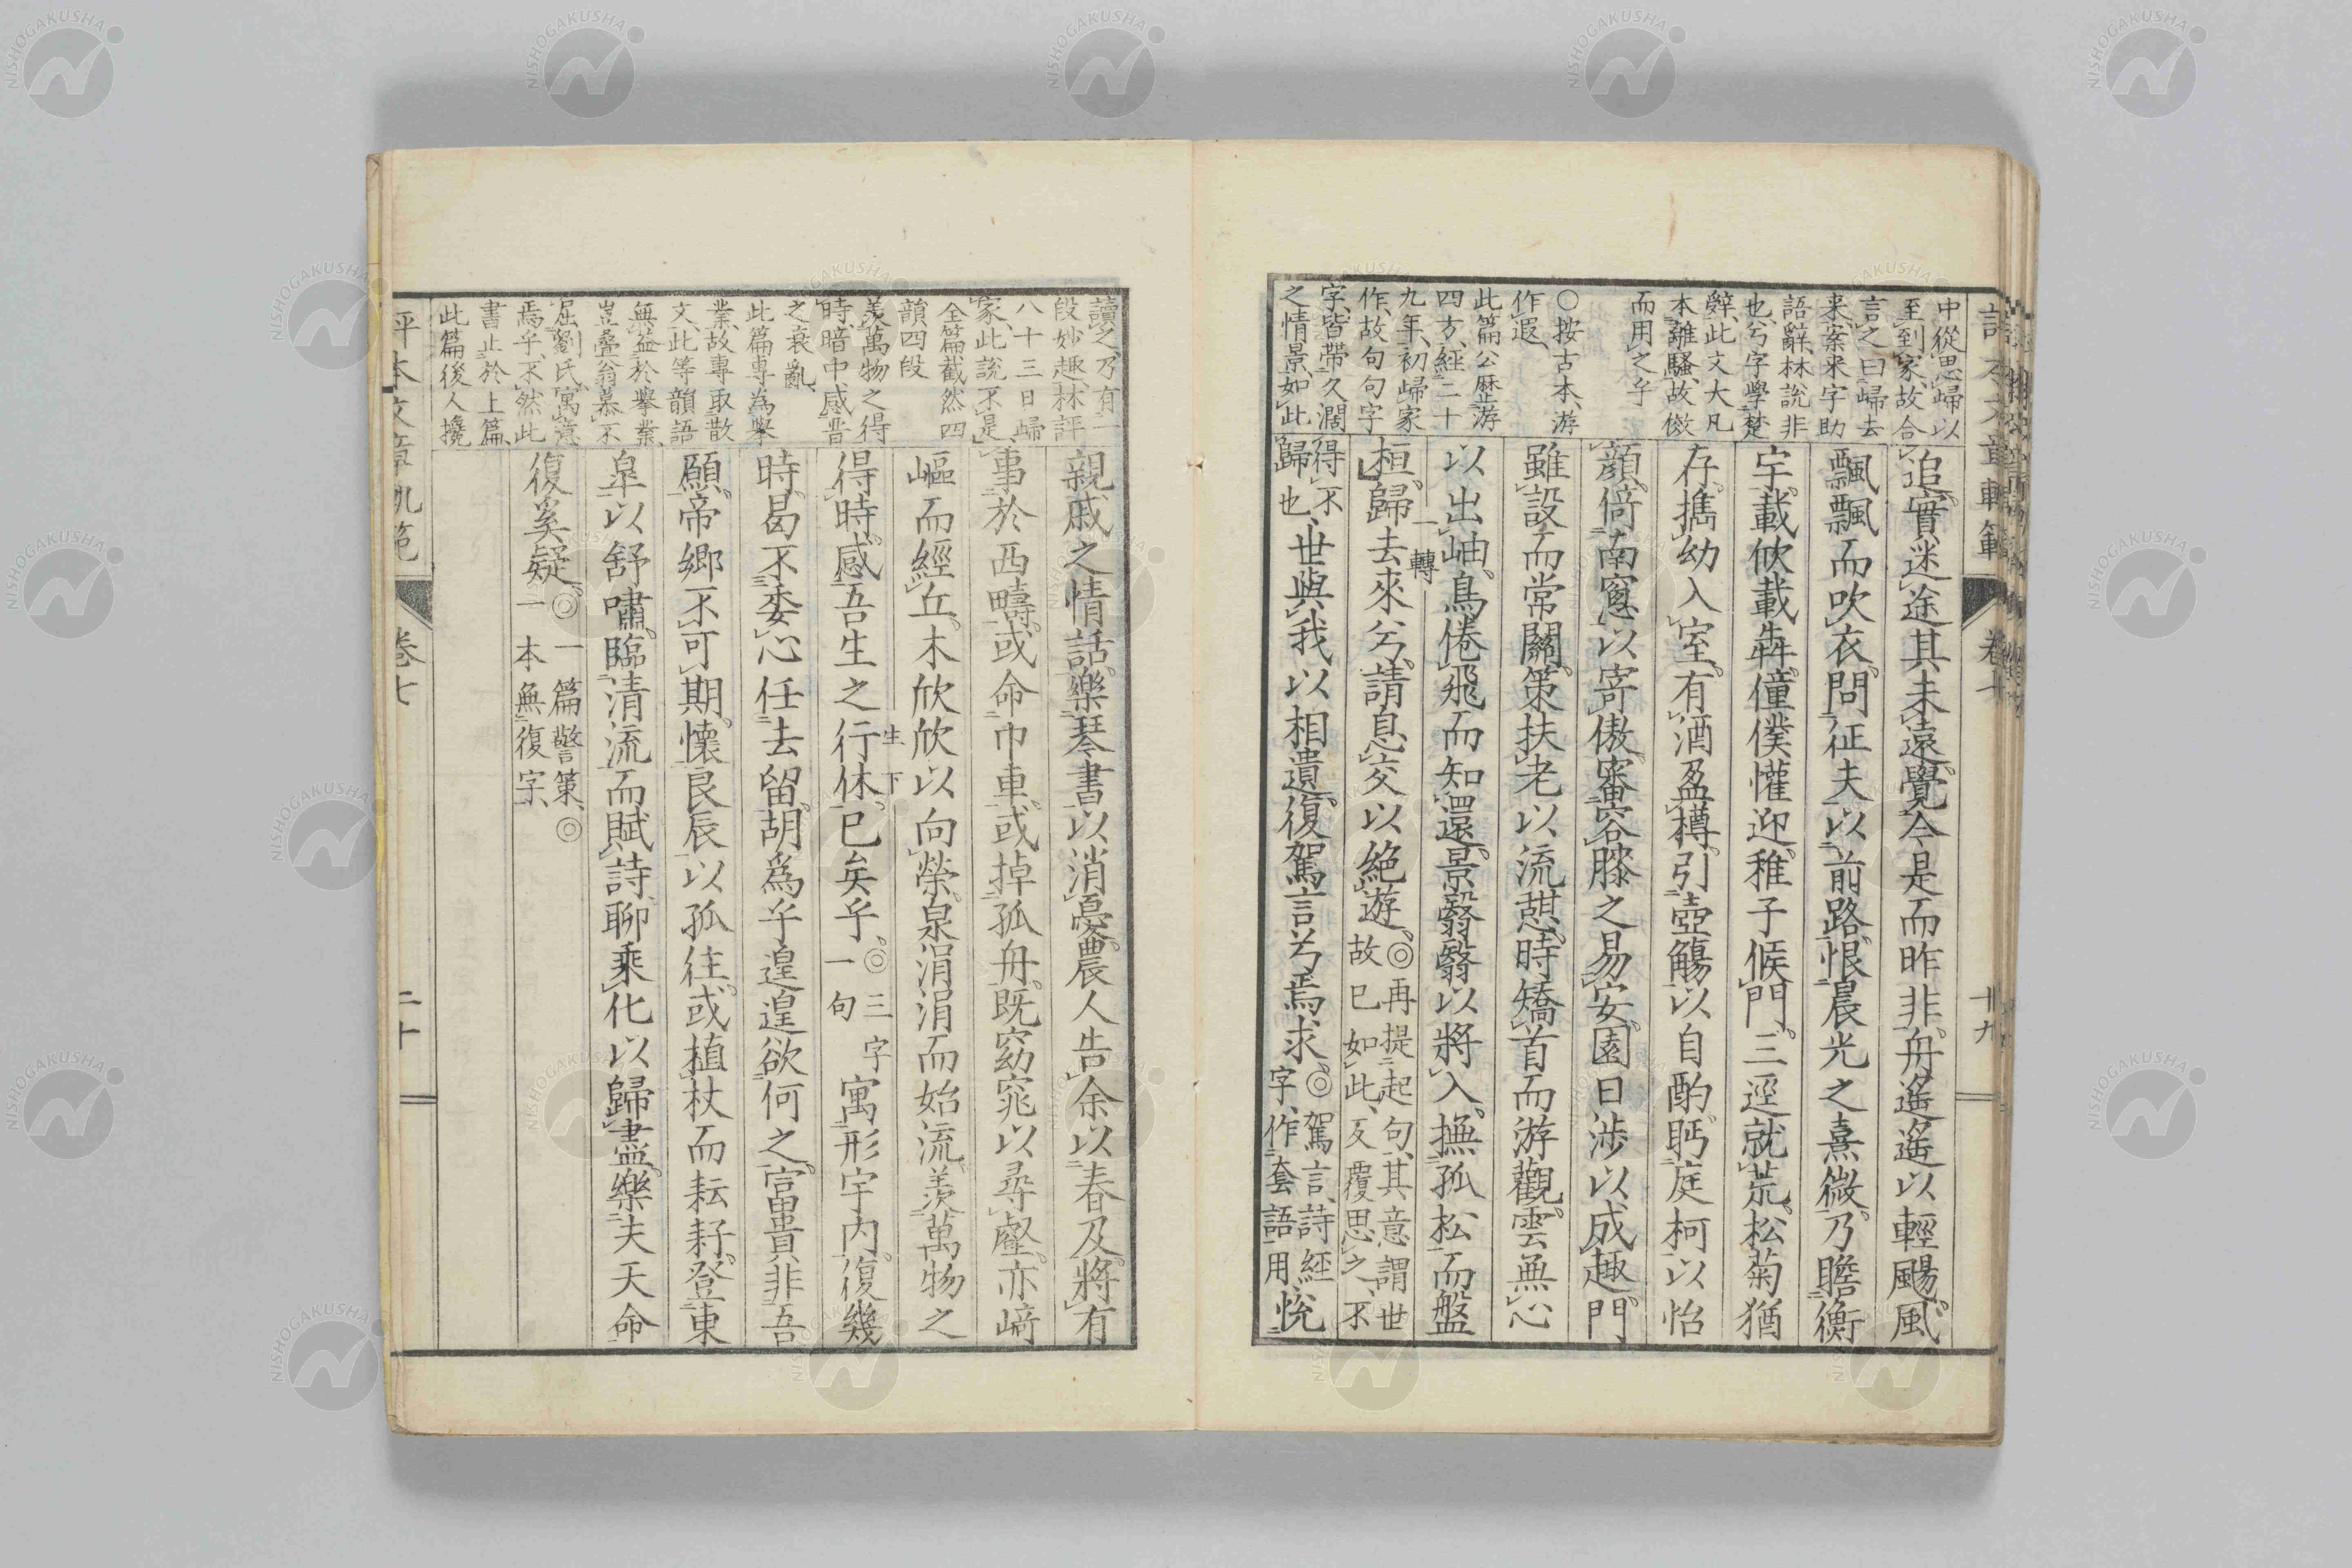 中從思歸以
至到家、故合
言之曰歸去
来、案来字助
語辭、林說非
也、兮字學楚
辭、此文大凡
本離騷、故倣
而用之乎
〇按古本、游
作遐、
此篇公歷游
四方、經二十
九年、初歸家
作、故句句字
字、皆帶久濶
之情景、如此
追。實迷途其未遠。覺今是而昨非。舟遙遙以輕颺。風
飄飄而吹衣。問征夫以前路。恨晨光之熹微。乃瞻衡
宇。載欣載犇。僮僕懽迎。稚子候門。三逕就荒。松菊猶
存。攜幼入室。有酒盈樽。引壺觴以自酌。眄庭柯以怡
顏。倚南窻以寄傲。審容膝之易安。園日涉以成趣。門
雖設而常關。策扶老以流憇。時矯首而游觀。雲無心
以出岫。鳥倦飛而知還。景翳翳以將入。撫孤松而盤
一轉
桓。歸去來兮。請息交以絶遊。◎再提起句、其意謂世
故已如此、反覆思之、不
得不
歸也、世與我以相遺。復駕言兮焉求。◎駕言、詩經
字、作套語用、悅
評本文章軌範
卷七
十九
讀之、乃有一
段妙趣、林評
八十三日歸
家、此說不是、
全篇截然四
韻、四段
羨萬物之得
時、暗中感晋
之衰亂、
此篇專為擧
業、故專取散
文、此等韻語
無益於擧業、
豈疊翁慕不
屈劉氏、寓意
焉乎、不然此
書止於上篇、
此篇後人攙
親戚之情話。樂琴書以消憂。農人告余以春及。將有
事於西疇。或命巾車。或掉孤舟。既窈窕以尋壑。亦﨑
嶇而經丘。木欣欣以向榮。泉涓涓而始流。羨萬物之
生下
得時。感吾生之行休。已矣乎、◎三字
一句寓形宇内。復幾
時。曷不委心任去留。胡爲乎遑遑欲何之。富貴非吾
願。帝郷不可期。懷良辰以孤往。或植杖而耘耔。登東
皐以舒嘯。臨清流而賦詩。聊乘化以歸盡。樂夫天命
復奚疑。◎一篇警策、◎
一本無復字、
評本文章軌範
卷七
二十